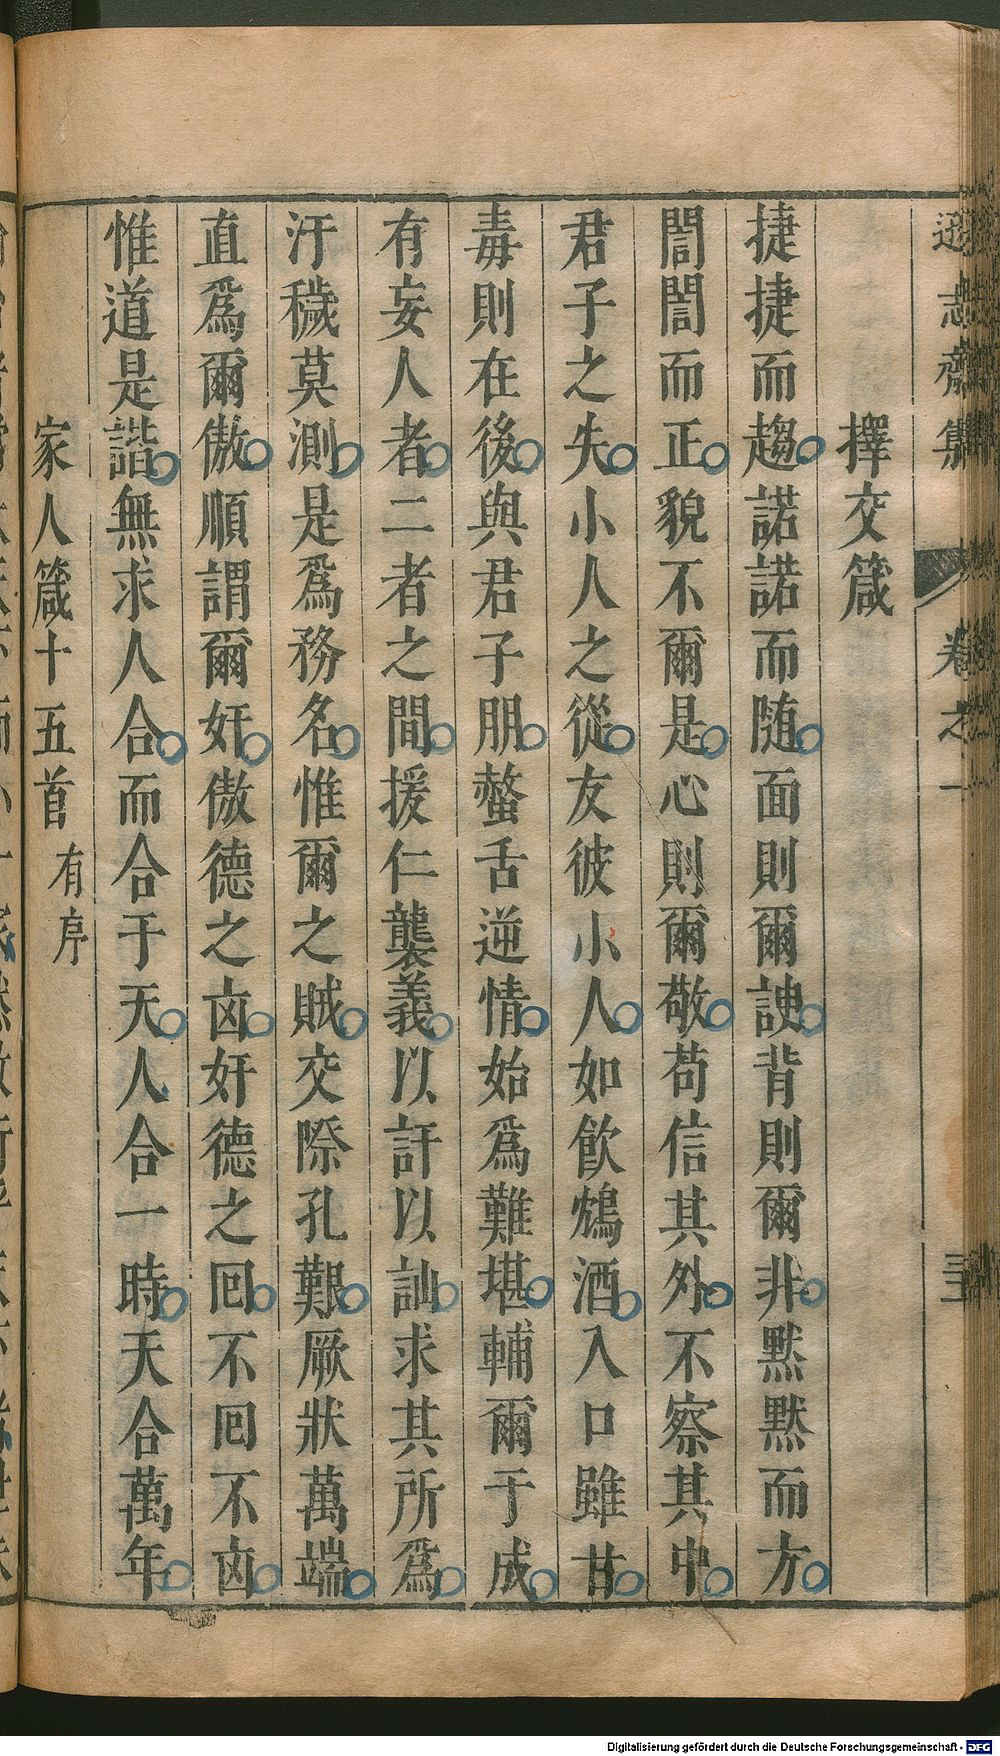 遜志齋集 卷之一 三十
擇交箴
捷捷而趨諾諾而随面則爾諛背則爾非黙黙而方
誾誾而正貌不爾是心則爾敬苟信其外不察其中
君子之失小人之從友彼小人如飮鴆酒入口雖甘
毒則在後與君子朋螫舌逆情始爲難堪輔爾于成
有妄人者二者之間援仁襲義以訐以訕求其所爲
汙穢莫測是爲務名惟爾之賊交際孔艱厥狀萬端
直爲爾傲順謂爾奸傲德之卤奸德之囘不囘不卤
惟道是諧無求人合而合于天人合一時天合萬年
家人箴十五首 有序
Digitalisierung gefördert durch die Deutsche Forschungsgemeinschaft - DFG